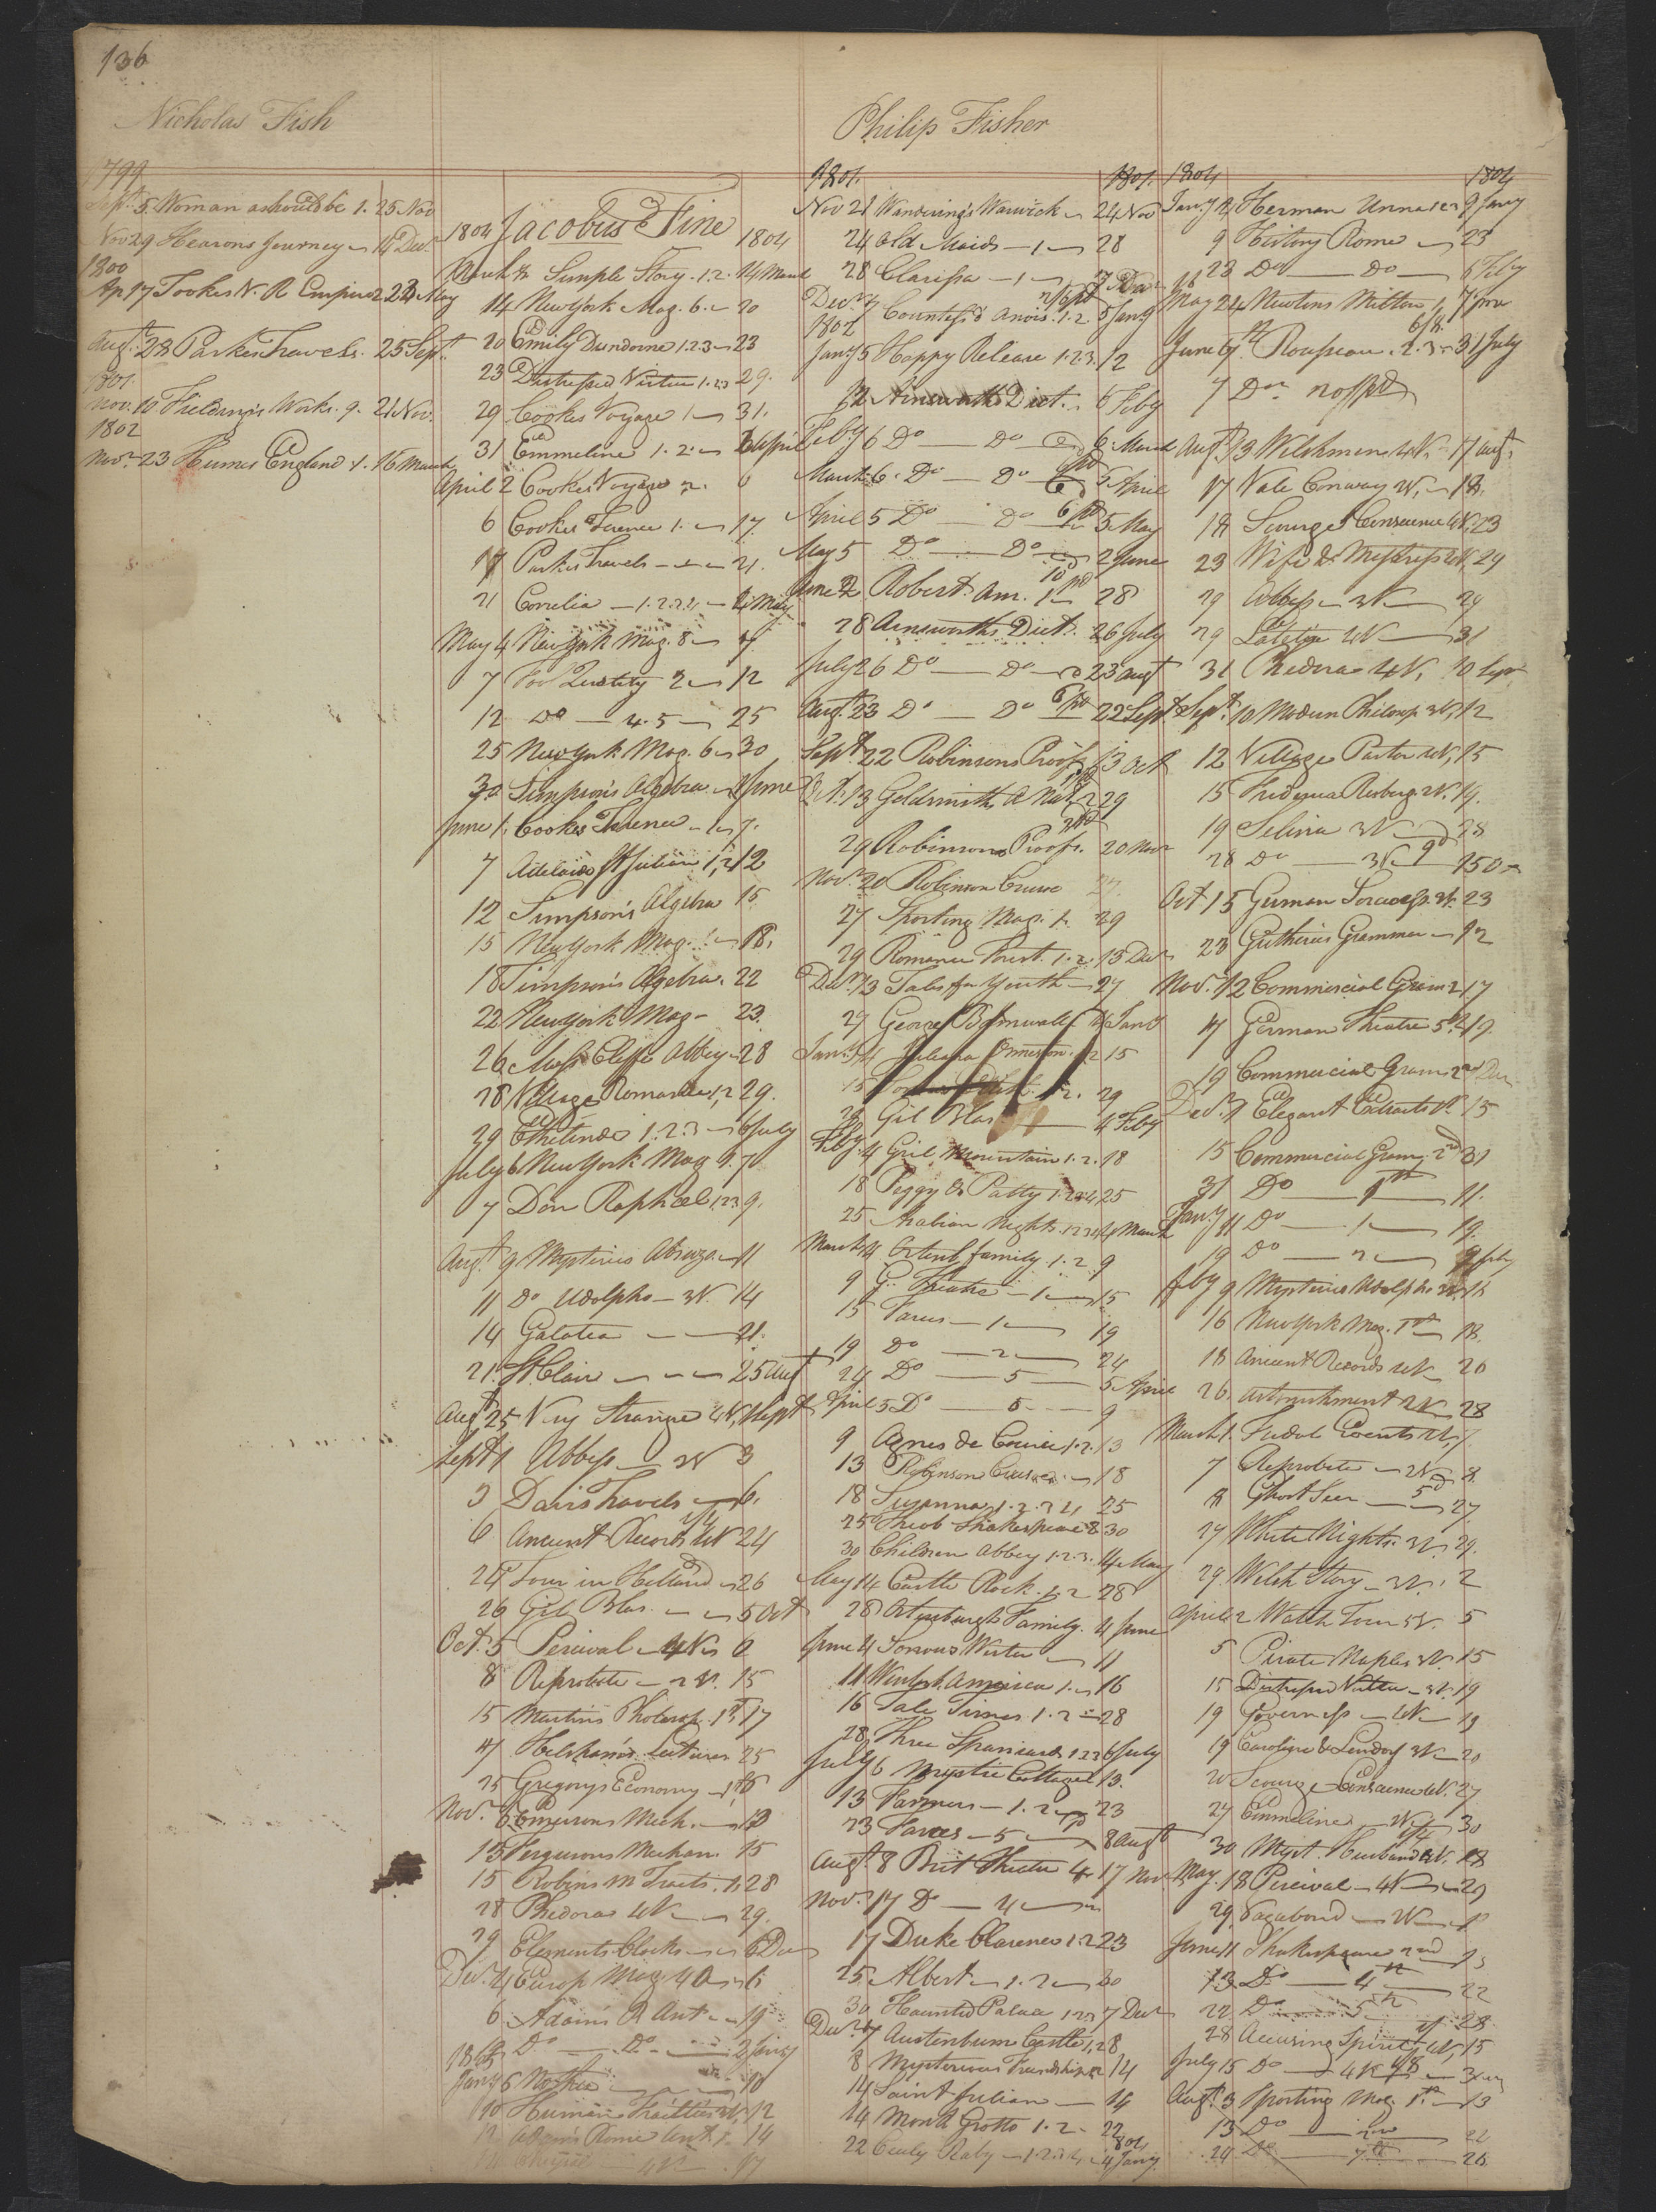 136
Nicholas Fish
1799
Sept. 5 Woman as should be 1. 25 Nov
Nov 29 Hearons Journey 14 Decr
1800
Ap 17 Tookes V. R. Empire 2 23 May
Augt. 28 Parkes Travels. 25 Sept.
1801.
Nov. 10 Fieldings Works. 9. 21 Nov.
1802
Novr. 23 Humes England 1. 16 March
Jacobus Fine
1804 1804
March 8 Simple Story. 1.2. 14 March
14 New York Mag. 6. 20
20 Emily Dundorne 1.2.3 23
23 Distressed Virtue 1.2.3 29.
29 Cookes Voyage 1 31.
31 Emmeline 1.2. 2 April
April 2 Cookes Voyage 2. 6
6 Cookes Terence 1. 17.
17 Parkes Travels 21.
21 Cornelia 1.2.3.4 4 May
May 4 New York Mag. 8 7
7 Fool Quality 2 12
12 Do 4.5 25
25 New York Mag. 6 30
30 Simpson's Algebra 1 June
June 1. Cookes Terence 1 7.
7 Adelaide St Julian 1,2 12
12 Simpson's Algebra 15
15 New York Mag. 18.
18 Simpson's Algebra. 22
22 New York Mag 23.
26 Cliffe Abbey 28
28 Village Romance 1,2 29.
29 Ethelinde 1.2.3 6 July
July 6 New York Mag 9. 7
7 Don Raphael 1.2.3 9.
Augt. 9 Mysteries Abruzo 11
11 Do Udolpho 3V. 14
14 Galatea 21.
21. St Clair 25 Augt
Augt 25 Very Strange 4V, 1 Sept
Sept 1 Abbess 3V 3
3 Davis Travels 6.
6 Ancient Records 4V 24
24 Tour in Holland 26
26 Gil Blas. 5 Oct
Oct. 5 Percival 4V 8
8 Reprobate 2V. 15
15 Martins Philosop. 1st, 17
17 Helsham's Lectures 25
25 Gregorys Economy 1st 6
Novr. 6 Emersons Mech. 13
13 Fergusons Mechan. 15
15 Robins M Tracts. 1. 28
28 Phedora 4V 29.
29. Elements Clocks 6 Dec
Decr. 4 Europ Mag. 40 6
6 Adams R Ant 19
19 Do Do 2 Jany
1805
Jany 6 10
10 Human Frailties 3V, 12
12 Adams Rome Ant. 14
Philip Fisher
1801. 1801.
Nov 21 Wanderings Warwick 24 Nov
24 Old Maids 1 28
28 Clarissa 1 7 Decr
Decr. 7 Countess d'Anois. 1.2. 5 Jany
1802
Jany 5 Happy Release 1.2.3. 12
12 Ainsworths Dict. 6 Feby
Feby 6 Do Do 6 March
March 6. Do Do 5 April
April 5 Do Do 5 May
May 5 Do Do 2 June
June 2 Robert Am. 1 28
28 Ainsworths Dict. 26 July
July 26 Do Do 23 Augt
Augt. 23 Do Do 22 Sept
Sept 22 Robinsons Proofs 13 Oct
Oct. 13 Goldsmith A Nat. 2 29
29 Robinsons Proofs. 20 Novr
Novr. 20 Robinson Crusoe 27.
27 Sporting Mag. 1. 29
29 Romance Forest. 1.2. 13 Decr
Decr. 13 Tales for Youth 27
27 George Barnwell 14 Jany
Jany 14 Juliana Ormeston. 1.2 15
15 1.2. 29
29 Gil Blas 4 Feby
Feby. 4 Girl Mountain 1.2. 18
18 Peggy & Patty 1.2.3.4 25
25 Arabian Nights. 1.2.3.4 4 March
March 4 Ortenb family 1.2. 9
9 G. Theatre 1 15
15 Vareus 1 19
19 Do 2 24
24 Do 5 5 April
April 5 Do 5 9
9 Agnes de Courci 1.2. 13
13 Robinson Crusoe 18
18 Susanna 1.2.3.4, 25
25 Theob Shakespeare 8 30
30 Children Abbey 1.2.3. 14 May
May 14 Castle Rock. 1.2 28
28 Ortenburgh Family. 4 June
June 4 Sorrows Werter 11
11 Winterb. America 1. 16
16 Tale Times 1.2 28
28 Three Spaniards 1.2.3 6 July
July 6 Mystic Cottage 1 13.
13 Farmers 1.2 23
23 Varves 5 8 Augt
Augt 8 Brit Theatre 4. 17 Nov
Nov. 17 Do 4
17 Duke Clarence 1.2 23
25 Albert 1.2 30
30 Haunted Palace 1.2.3 7 Decr
Decr. 7 Austenburn Castle 1,2 8
8 Mysterious Friendship 1.2 14
14 Saint Julian 14
14 Monk Grotto 1.2. 22
1804
22 Cicely Raby 1.2.3.4. 4 Jany.
1804 1804
Jany 4 Herman Unna 1.2 9 Jany
9 History Rome 23
23 Do Do 6 Feby
May 24 Newtons Milton 1, 7 June
June 7 Rousseau. 2.3 31 July
7 Do no
Augt. 13 Welshmen 4V. 17 Augt
17 Vale Conway 2V. 18.
18 Scourge Conscience 4V, 23
23 Wife & Mistress 2V, 29
29 Abbess 3V 29
29 Latitia 2V 31
31 Phedora 4V, 10 Sept
Sept. 10 Modern Philosop 3V, 12
12 Village Pastor 2V, 15
15 Frederica Risberg. 2V. 19.
19 Selina 3V 28
28 Do 3V 15 Oct
Oct 15 German Sorceress. 2V. 23
23 Gutheries Grammer 12
Nov. 12 Commercial Gram 2 17
17 German Theatre 5th 19.
19 Commercial Gram 2nd 7 Dec
Decr. 7 Elegant Extracts 1. 15
15 Commercial Gram. 2nd 31
31 Do 1st 11.
Jany 11 Do 1 19.
19 Do 2 9 Feb
Feby 9 Mysteries Udolpho 3V. 16
16 New York Mag. 1st 18.
18 Ancient Records 4V 26
26. Astonishment 2V 28
March 1. Feudal Events 2V, 7.
7 Reprobate 2V 8.
8 Ghost Seer 27
27 White Nights. 3V. 29.
29. Welsh Story 3V. 2
April 2 Walsh Tour 3V. 5
5 Pirate Naples 3V. 15
15 Distressed Virtue 3V. 19
19 Governess 4V 19
19 Caroline & Lindorf 3V 20
20 Scourge Conscience 4V. 27
27 Emmeline 2V 30
30 Myst. Husband 4V. 18
May. 18 Percival 4V 29
29 Vagabond 2V
June 11 Shakespeare 2nd 13
13 Do 4th 22
22 Do 5th 28
28 Accusing Spirit 4V, 15
July 15 Do 4V 3
Augt. 3 Sporting Mag 1st 13
13 Do 22
24 Do 7th 26